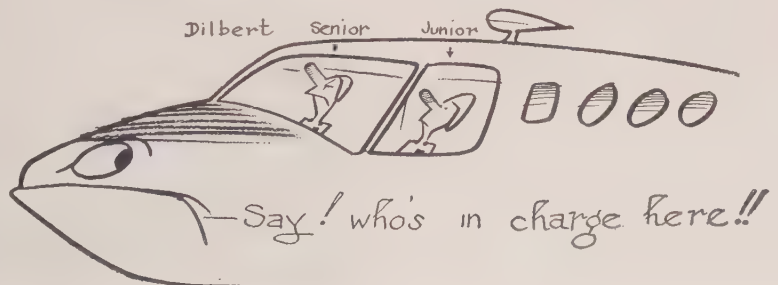 Dilbert Senior Junior
Say! who's in charge here!!